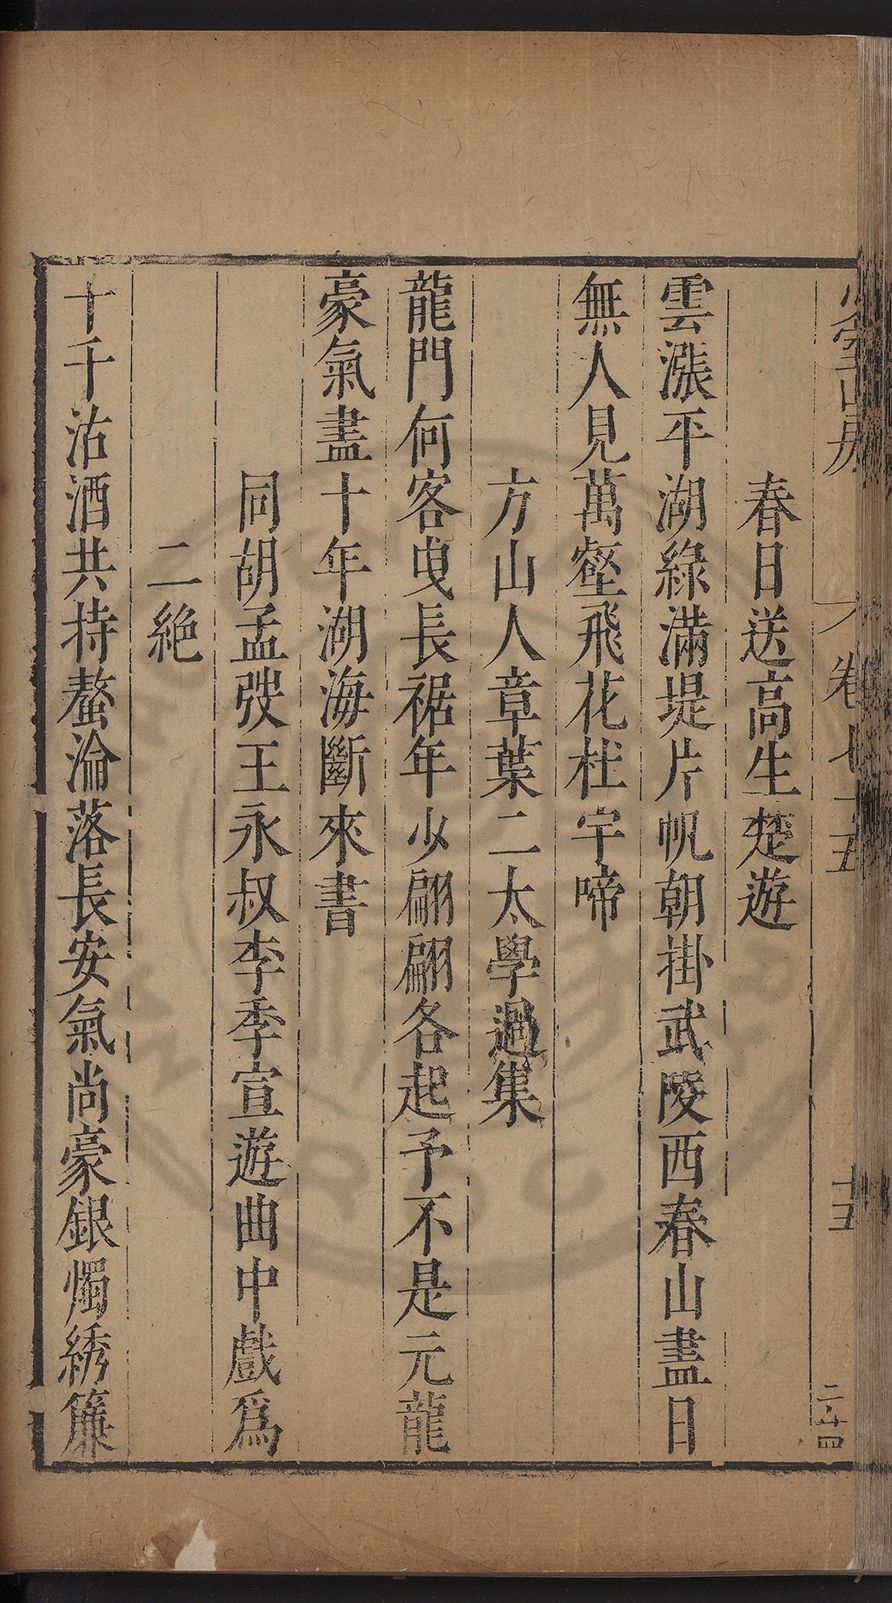 少室山房
卷七十五
十五
二卅四
春日送高生楚遊
雲漲平湖綠滿堤片帆朝掛武陵西春山盡日
無人見萬壑飛花杜宇啼
方山人章葉二太學過集
龍門何客曳長裾年少翩翩各起予不是元龍
豪氣盡十年湖海斷來書
同胡孟弢王永叔李季宣遊曲中戲爲
二絶
十千沽酒共持螯淪落長安氣尚豪銀燭綉簾